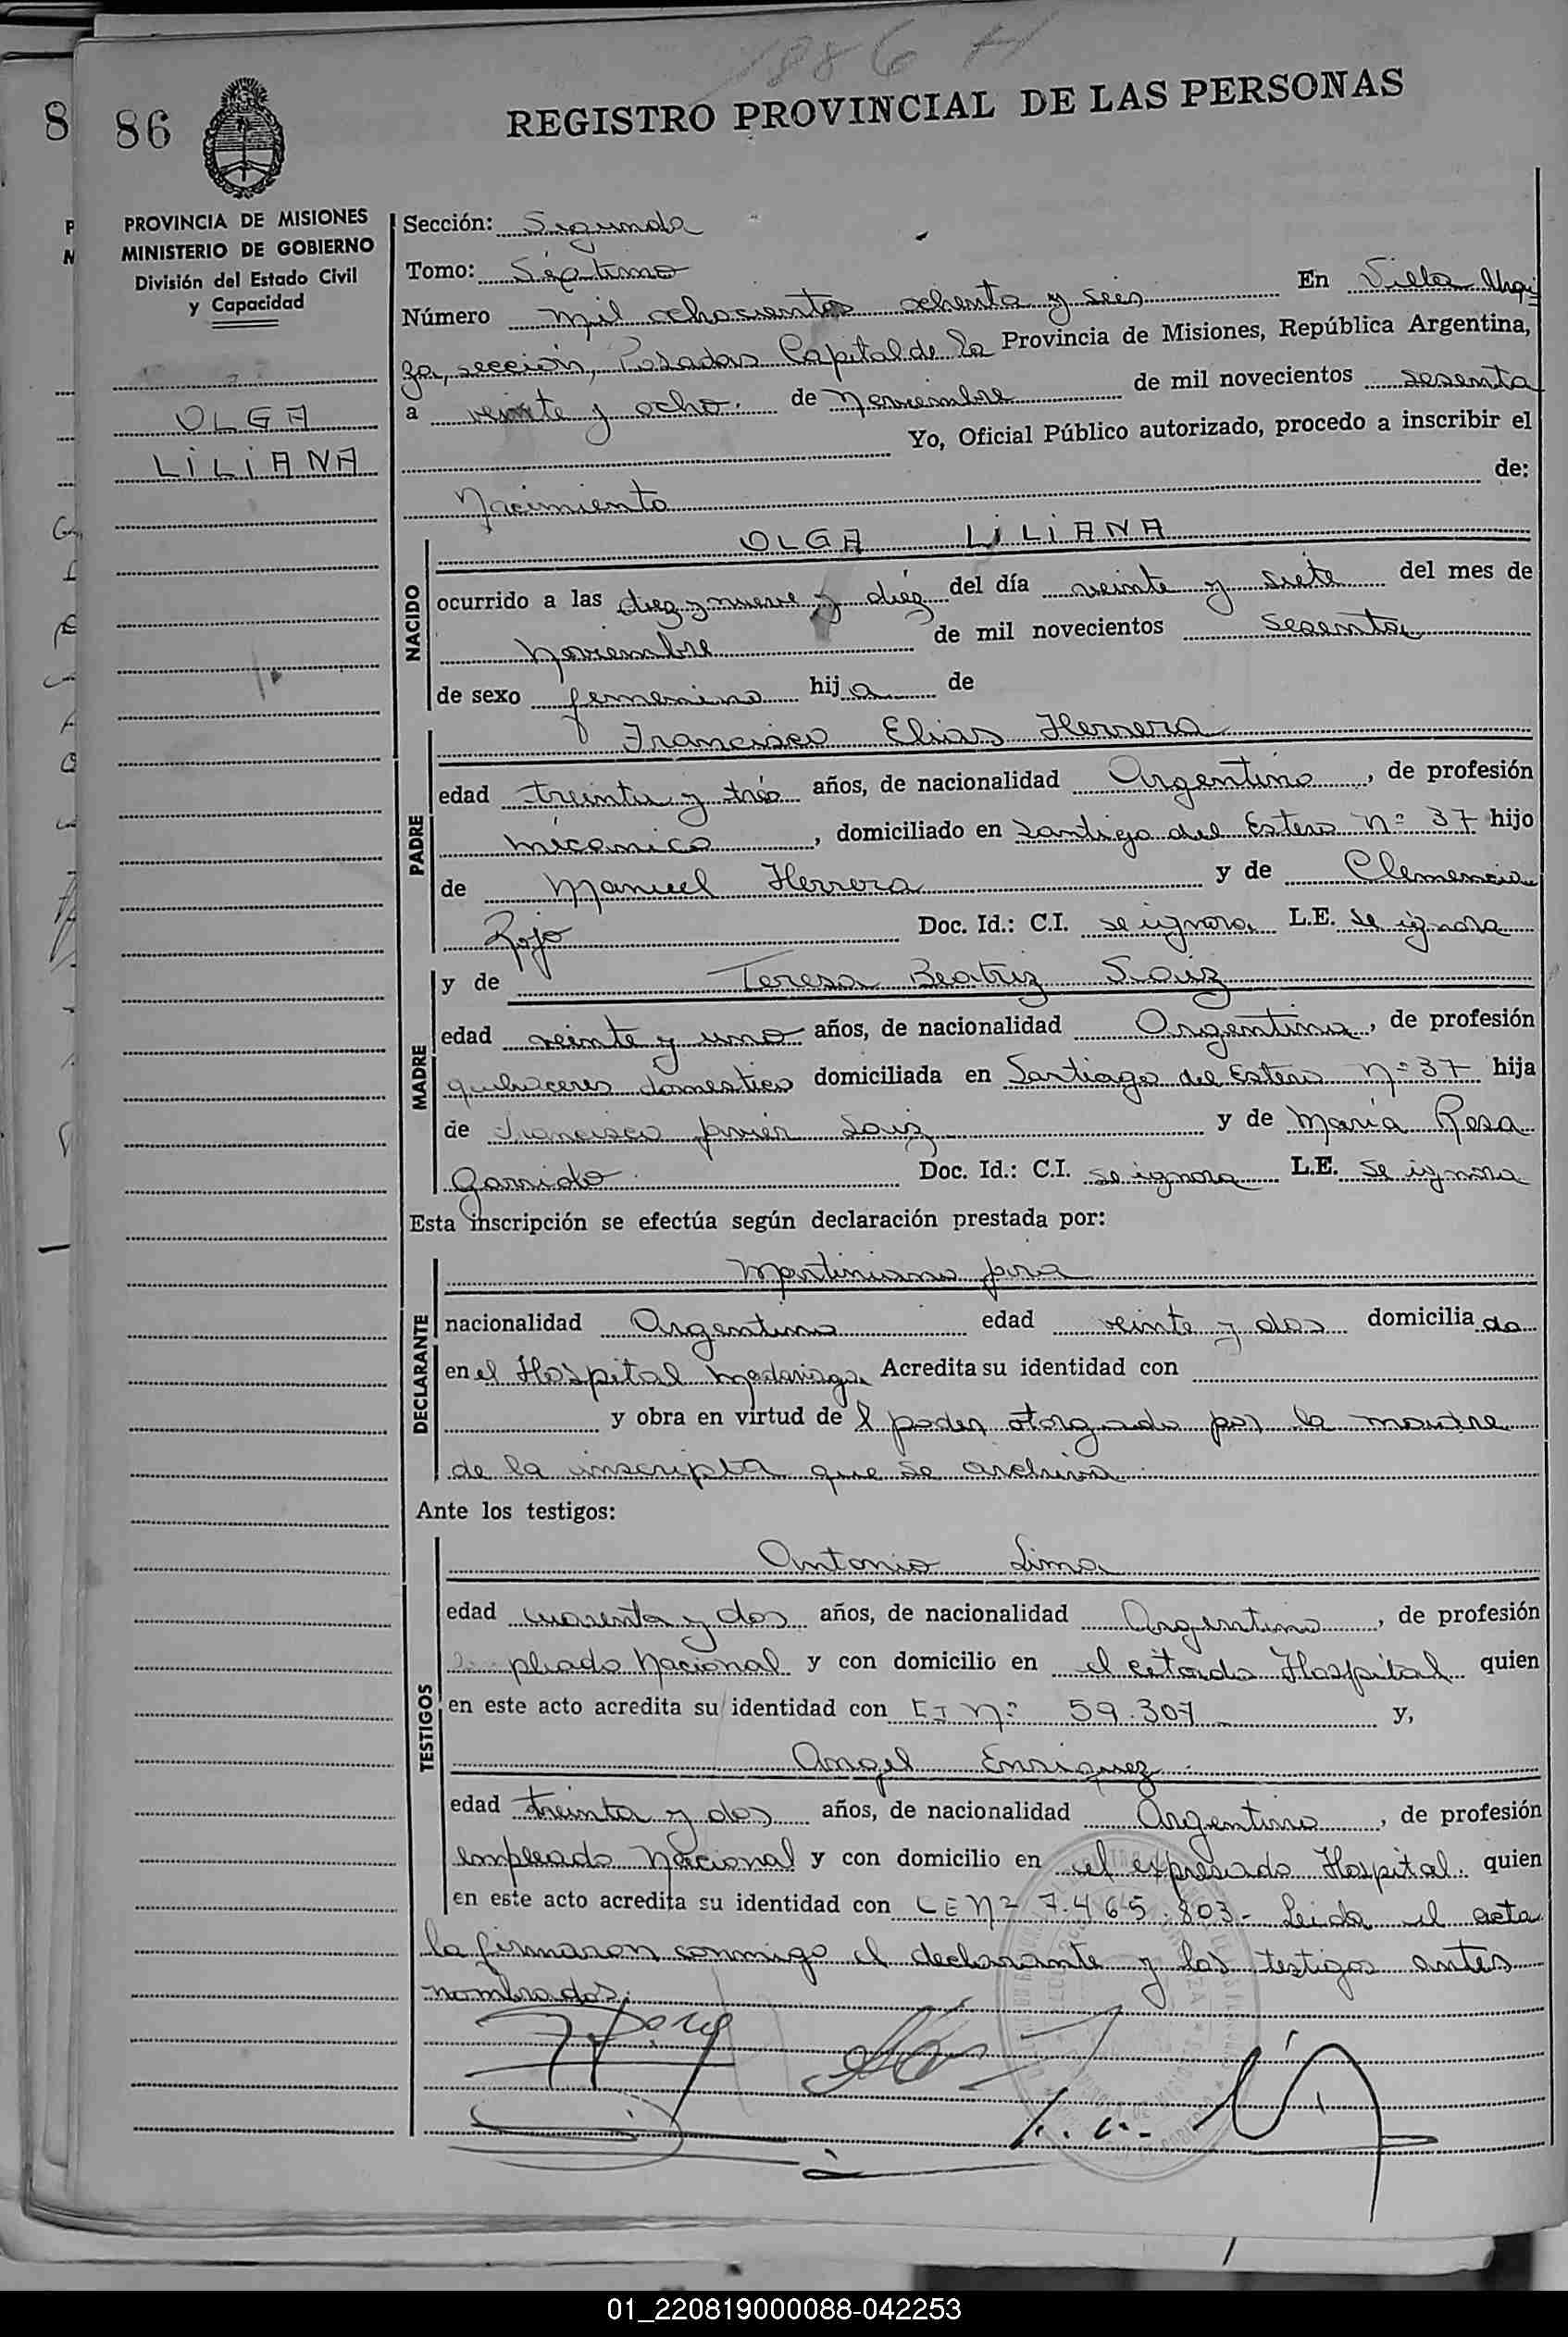 1886 H
REGISTRO PROVINCIAL DE LAS PERSONAS
8
86
PROVINCIA DE MISIONES
MINISTERIO DE GOBIERNO
División del Estado Civil
y Capacidad
OLGA
LILIANA
Sección: Segunda
Tomo: Séptimo
Número mil ochocientos ochenta y seis En Villa Urqui
za, sección, Posadas Capital de la Provincia de Misiones, República Argentina,
a veinte y ocho de Noviembre de mil novecientos sesenta
Yo, Oficial Público autorizado, procedo a inscribir el
Nacimiento de:
NACIDO
OLGA LILIANA
ocurrido a las diez y nueve y diéz del día veinte y siete del mes de
Noviembre de mil novecientos sesenta
de sexo femenino hija de
PADRE
Francisco Elias Herrera
edad treinta y trés años, de nacionalidad Argentino, de profesión
mécanico, domiciliado en Santiago del Estero Nº 37 hijo
de Manuel Herrera y de Clemencia
Rojo Doc. Id.: C.I. se ignora L.E. se ignora
MADRE
y de Teresa Beatriz Saiz
edad veinte y uno años, de nacionalidad Argentina, de profesión
quehaceres domestico domiciliada en Santiago del Estero Nº 37 hija
de Francisco Javier Saiz y de Maria Rosa
Garrido Doc. Id.: C.I. se ignora L.E. se ignora
Esta inscripción se efectúa según declaración prestada por:
DECLARANTE
Martiniano
nacionalidad Argentino edad veinte y dos domiciliado
en el Hospital Madariaga Acredita su identidad con
y obra en virtud del poder otorgado por la madre
de la inscripta que se archiva
Ante los testigos:
TESTIGOS
Antonio Lima
edad cuarenta y dos años, de nacionalidad Argentino, de profesión
empleado Nacional y con domicilio en el citado Hospital quien
en este acto acredita su identidad con CI Nº 59.307 y,
Angel Enriquez
edad treinta y dos años, de nacionalidad Argentino, de profesión
empleado Nacional y con domicilio en el expresado Hospital quien
en este acto acredita su identidad con LE Nº 7.465.803.- Leida el acta
la firmaron conmigo el declarante y los testigos antes
nombrados.
01_220819000088-042253